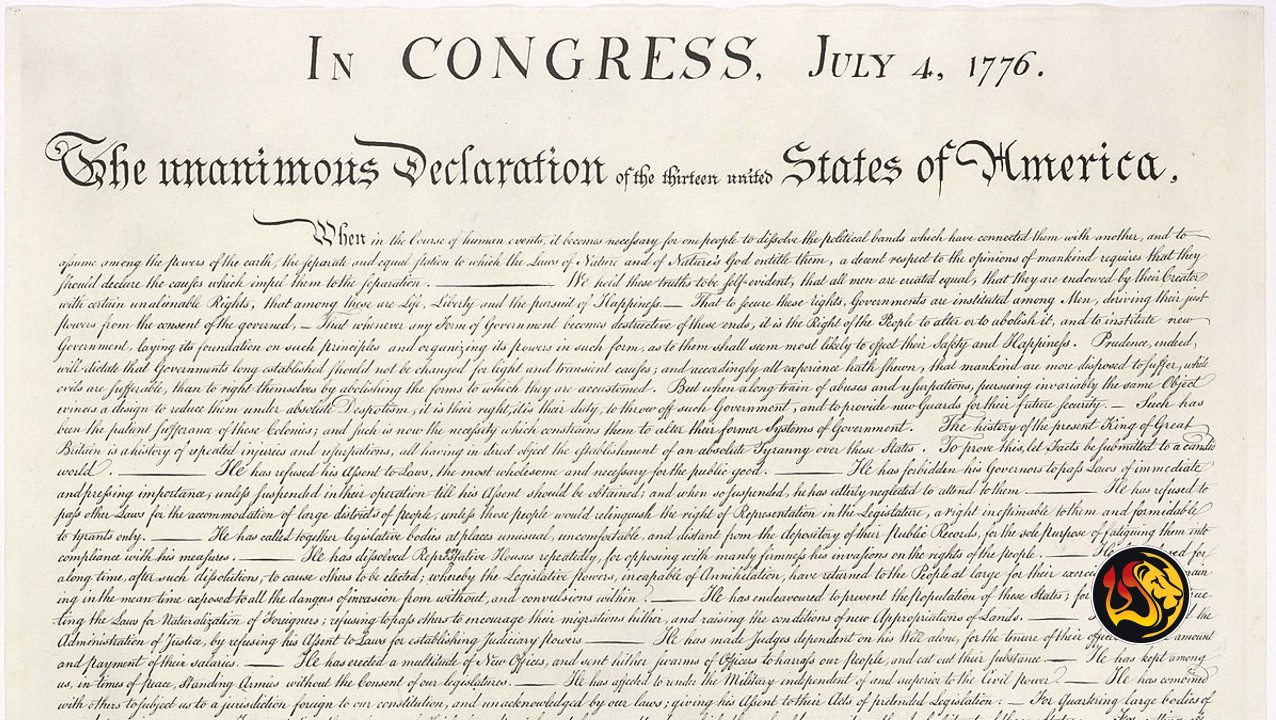 In CONGRESS, July 4, 1776.
The unanimous Declaration of the thirteen united States of America,
When in the Course of human events, it becomes necessary for one people to dissolve the political bands which have connected them with another, and to
assume among the powers of the earth, the separate and equal station to which the Laws of Nature and of Nature's God entitle them, a decent respect to the opinions of mankind requires that they
should declare the causes which impel them to the separation. — We hold these truths to be self-evident, that all men are created equal, that they are endowed by their Creator
with certain unalienable Rights, that among these are Life, Liberty and the pursuit of Happiness — That to secure these rights, Governments are instituted among Men, deriving their just
powers from the consent of the governed, — That whenever any Form of Government becomes destructive of these ends, it is the Right of the People to alter or to abolish it, and to institute new
Government, laying its foundation on such principles and organizing its powers in such form, as to them shall seem most likely to effect their Safety and Happiness. Prudence, indeed,
will dictate that Governments long established should not be changed for light and transient causes; and accordingly all experience hath shewn, that mankind are more disposed to suffer, while
evils are sufferable, than to right themselves by abolishing the forms to which they are accustomed. But when a long train of abuses and usurpations, pursuing invariably the same Object
evinces a design to reduce them under absolute Despotism, it is their right, it is their duty, to throw off such Government, and to provide new Guards for their future security. — Such has
been the patient sufferance of these Colonies; and such is now the necessity which constrains them to alter their former Systems of Government. The history of the present King of Great
Britain is a history of repeated injuries and usurpations, all having in direct object the establishment of an absolute Tyranny over these States. To prove this, let Facts be submitted to a candid
world. — He has refused his Assent to Laws, the most wholesome and necessary for the public good. — He has forbidden his Governors to pass Laws of immediate
and pressing importance, unless suspended in their operation till his Assent should be obtained; and when so suspended, he has utterly neglected to attend to them. — He has refused to
pass other Laws for the accommodation of large districts of people, unless those people would relinquish the right of Representation in the Legislature, a right inestimable to them and formidable
to tyrants only. — He has called together legislative bodies at places unusual, uncomfortable, and distant from the depository of their Public Records, for the sole purpose of fatiguing them into
compliance with his measures. — He has dissolved Representative Houses repeatedly, for opposing with manly firmness his invasions on the rights of the people. — He for
a long time, after such dissolutions, to cause others to be elected; whereby the Legislative powers, incapable of Annihilation, have returned to the People at large for their
ing in the mean time exposed to all the dangers of invasion from without, and convulsions within. — He has endeavoured to prevent the population of these States; for
ting the Laws for Naturalization of Foreigners; refusing to pass others to encourage their migrations hither, and raising the conditions of new Appropriations of Lands. — the
Administration of Justice, by refusing his Assent to Laws for establishing Judiciary powers. — He has made Judges dependent on his Will alone, for the tenure of their amount
and payment of their salaries. — He has erected a multitude of New Offices, and sent hither swarms of Officers to harrass our People, and eat out their substance. — He has kept among
us, in times of peace, Standing Armies without the Consent of our legislatures. — He has affected to render the Military independent of and superior to the Civil power. — He has combined
with others to subject us to a jurisdiction foreign to our constitution, and unacknowledged by our laws; giving his Assent to their Acts of pretended Legislation: — For Quartering large bodies of